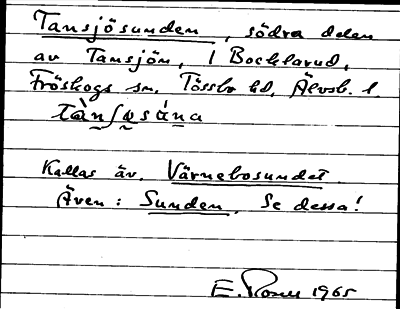 Tansjösunden, södra delen
av Tansjön, i Bocklarud,
Fröskogs sn. Tössbo hd, Älvsb. l.
Kallas äv. Värnebosundet.
Även: Sunden. Se dessa!
E. 1965